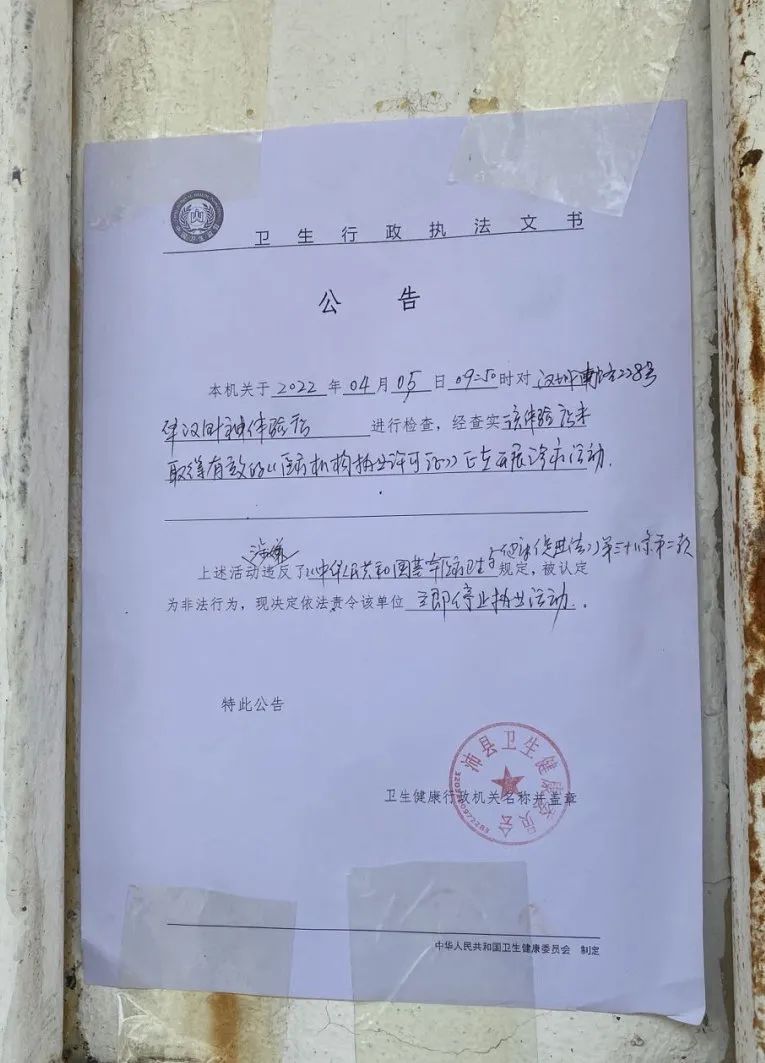 卫生行政执法文书
公 告
本机关于 2022 年 04 月 05 日 09:50 时对 汉城南路228号
体验店 进行检查，经查实 该体验店未
取得有效的《医疗机构执业许可证》正在开展诊疗活动.
涉嫌
上述活动违反了《中华人民共和国基本医疗卫生与健康促进法》第三十八条第二款 规定，被认定
为非法行为，现决定依法责令该单位 立即停止执业活动.
特此公告
卫生健康行政机关名称并盖章
沛县卫生健康委员会
中华人民共和国卫生健康委员会 制定